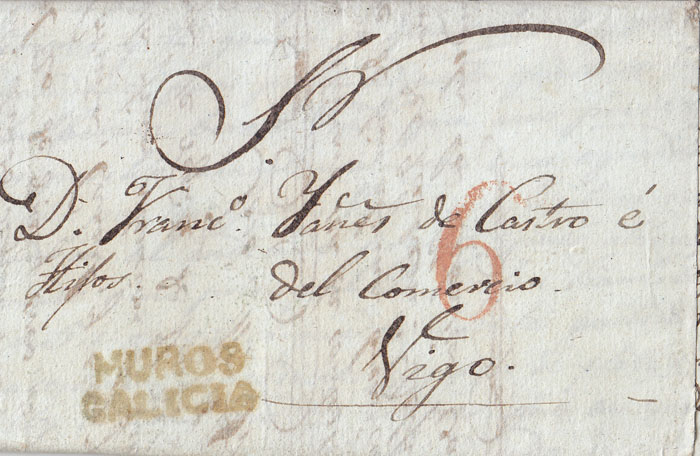 Sr
D. Franco. Yañes de Castro é
Hijos. del Comercio.
Vigo.
6
MUROS
GALICIA